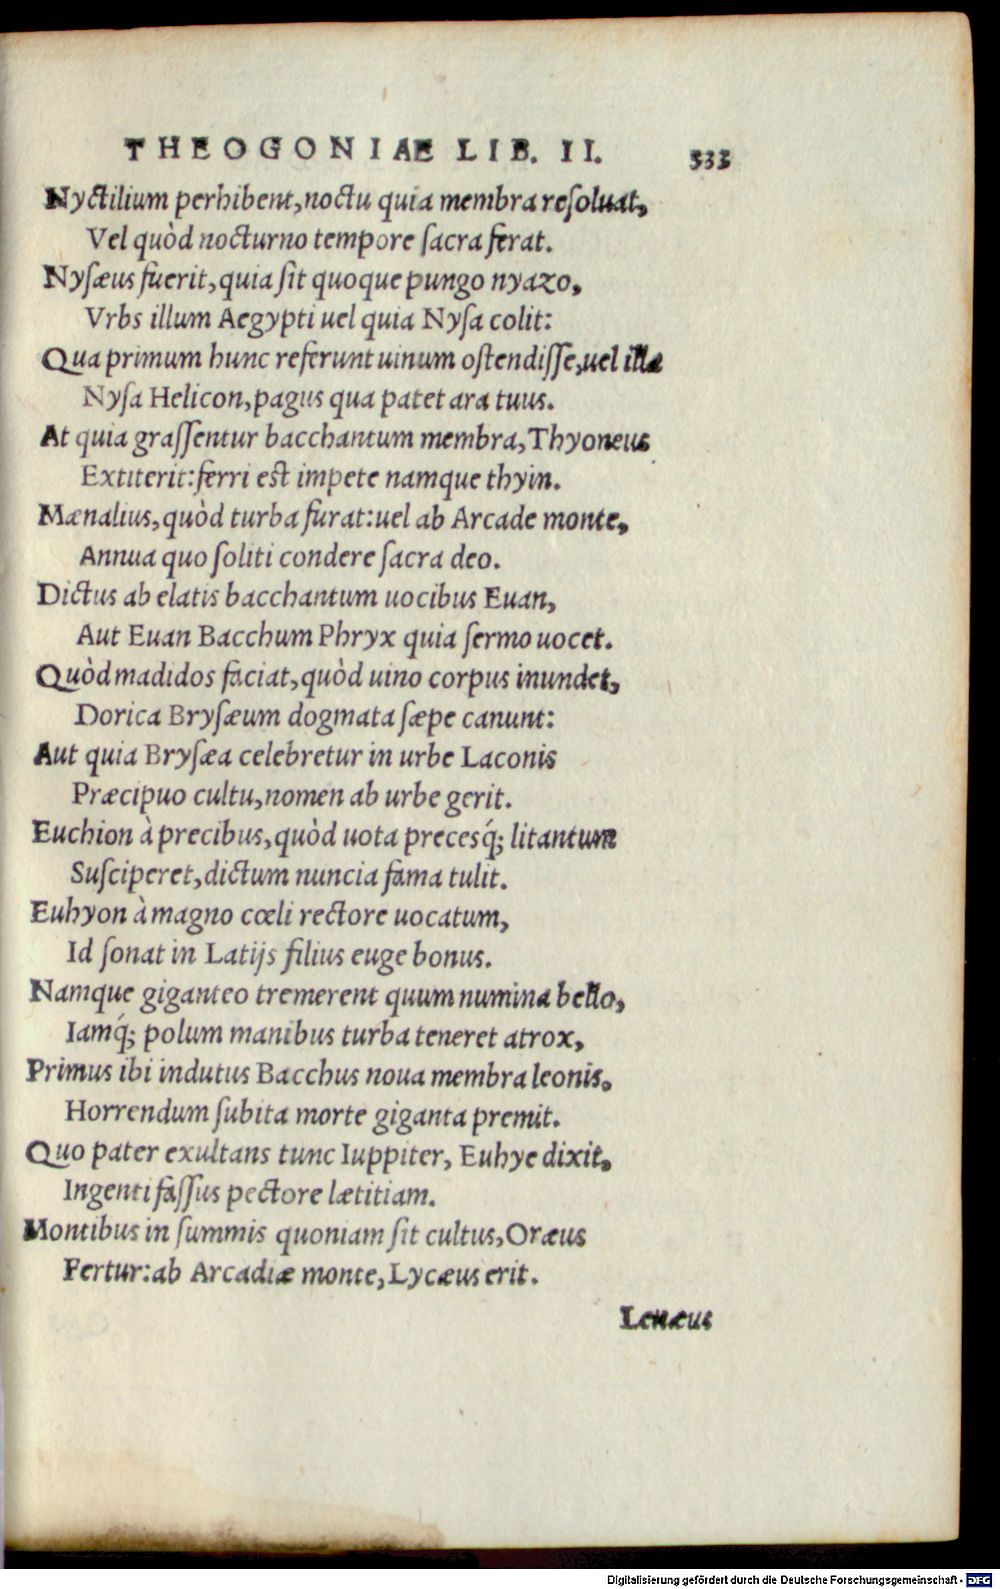 THEOGONIAE LIB. II. 333
Nyctilium perhibent, noctu quia membra resoluat,
Vel quòd nocturno tempore sacra ferat.
Nysæus fuerit, quia sit quoque pungo nyazo,
Vrbs illum Aegypti uel quia Nysa colit:
Qua primum hunc referunt uinum ostendisse, uel illa
Nysa Helicon, pagus qua patet ara tuus.
At quia grassentur bacchantum membra, Thyoneus
Extiterit: ferri est impete namque thyin.
Mænalius, quòd turba furat: uel ab Arcade monte,
Annua quo soliti condere sacra deo.
Dictus ab elatis bacchantum uocibus Euan,
Aut Euan Bacchum Phryx quia sermo uocet.
Quòd madidos faciat, quòd uino corpus inundet,
Dorica Brysæum dogmata sæpe canunt:
Aut quia Brysæa celebretur in urbe Laconis
Præcipuo cultu, nomen ab urbe gerit.
Euchion à precibus, quòd uota precesq́; litantum
Susciperet, dictum nuncia fama tulit.
Euhyon à magno cœli rectore uocatum,
Id sonat in Latijs filius euge bonus.
Namque giganteo tremerent quum numina bello,
Iamq́; polum manibus turba teneret atrox,
Primus ibi indutus Bacchus noua membra leonis.
Horrendum subita morte giganta premit.
Quo pater exultans tunc Iuppiter, Euhye dixit,
Ingenti fassus pectore lætitiam.
Montibus in summis quoniam sit cultus, Oræus
Fertur: ab Arcadiæ monte, Lycæus erit.
Lenæus
Digitalisierung gefördert durch die Deutsche Forschungsgemeinschaft - DFG